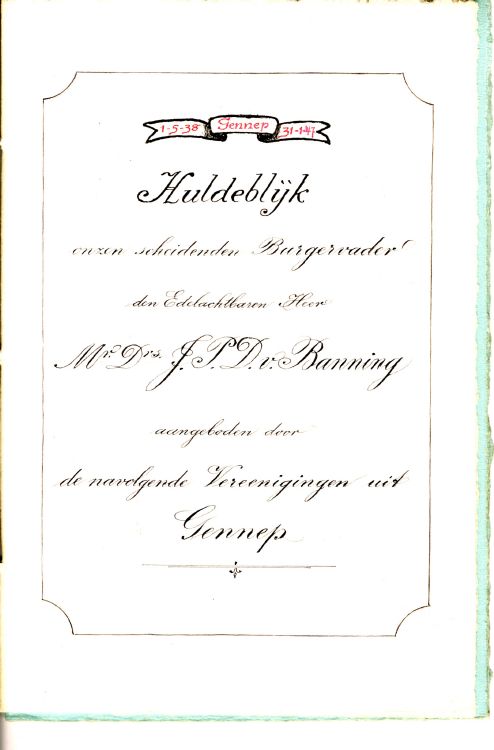 1-5-38 Gennep 31-1-47
Huldeblijk
onzen scheidenden Burgervader
den Edelachtbaren Heer
Mr. Drs. J. P. D. v. Banning
aangeboden door
de navolgende Vereenigingen uit
Gennep